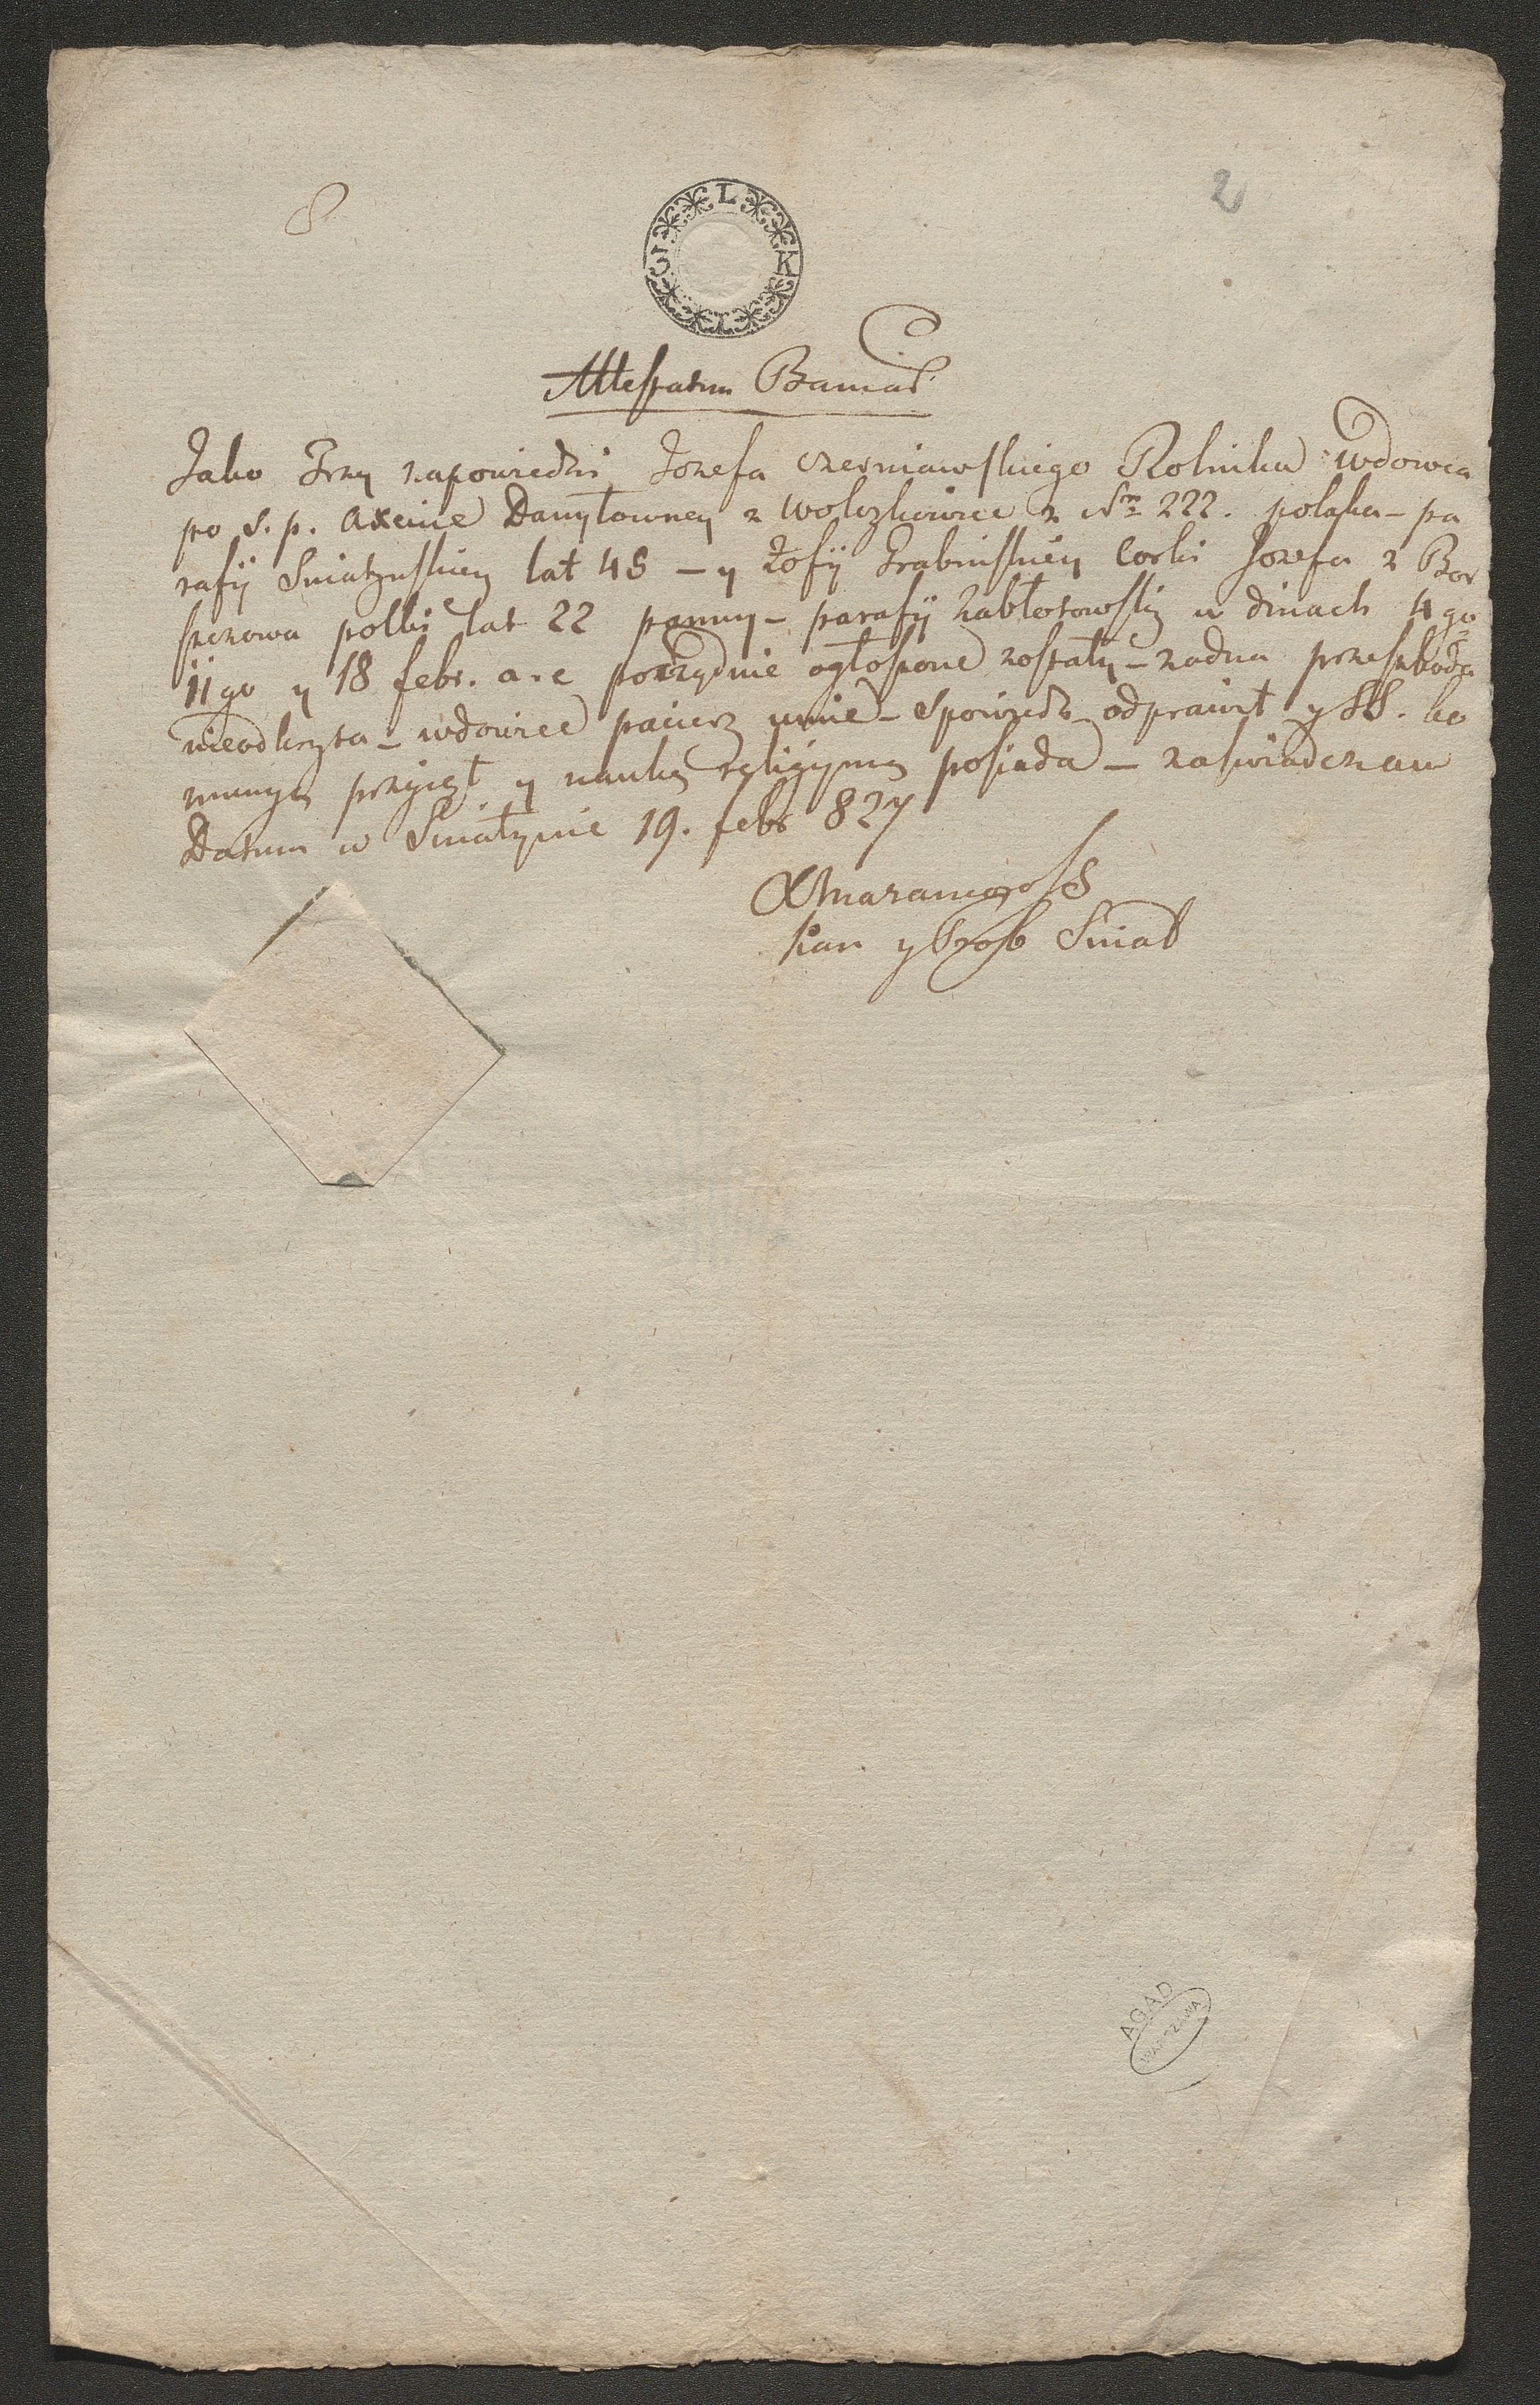 8
2
3 K L I
Attestatum Bannal.
Jako Trzy zapowiedzi Jozefa Czerniawskiego Rolnika wdowca
po s. p. Axenie Danyłowney z Wołczkowiec z Nro 222. polaka - pa
rafij Sniatynskiey lat 48 - y Zofij Grabinskiey Corki Jozefa z Bor
szczowa polki lat 22 panny - parafij Zabłotowskiy w dniach 4go
11go y 18 febr. a. c porządnie ogłoszone zostały - zadna przeszkoda
nieodkryta - wdowiec pacierz umie - spowiedz odprawił y SS. ko
munyą przyiął y naukę religiyną posiada - zaswiadczam
Datum w Sniatynie 19. febr 827
kan y Prob Sniat
AGAD
WARSZAWA